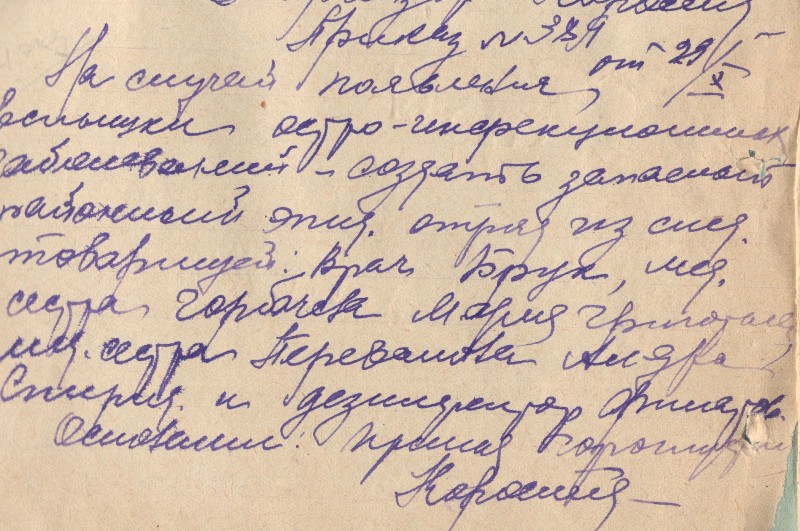 Приказ № 389 от 29/X
На случай появления
вспышки остро-инфекционных
заболеваний – создать запасный
районный эпид. отряд из след.
товарищей: Врач Брук, мед.
сестра Горбачева Мария
мед. сестра Перевалова
Спирид. и дезинфектор Филатова.
Основание: приказ